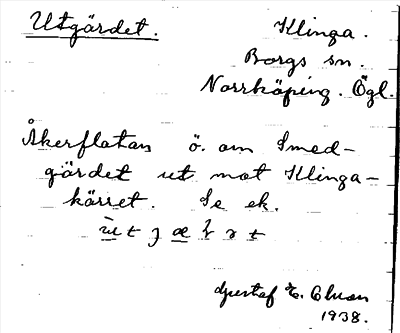 Utgärdet.
Klinga.
Borgs sn.
Norrköping. Ögl.
Åkerflatan ö. om Smed-
gärdet ut mot Klinga-
kärret. Se ek.
Gustaf
1938.